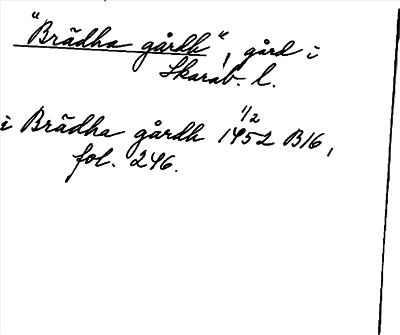 "Brādha gårdh", gård i
Skarab. l.
i Brādha gårdh 1/2 1452 B16,
fol. 246.